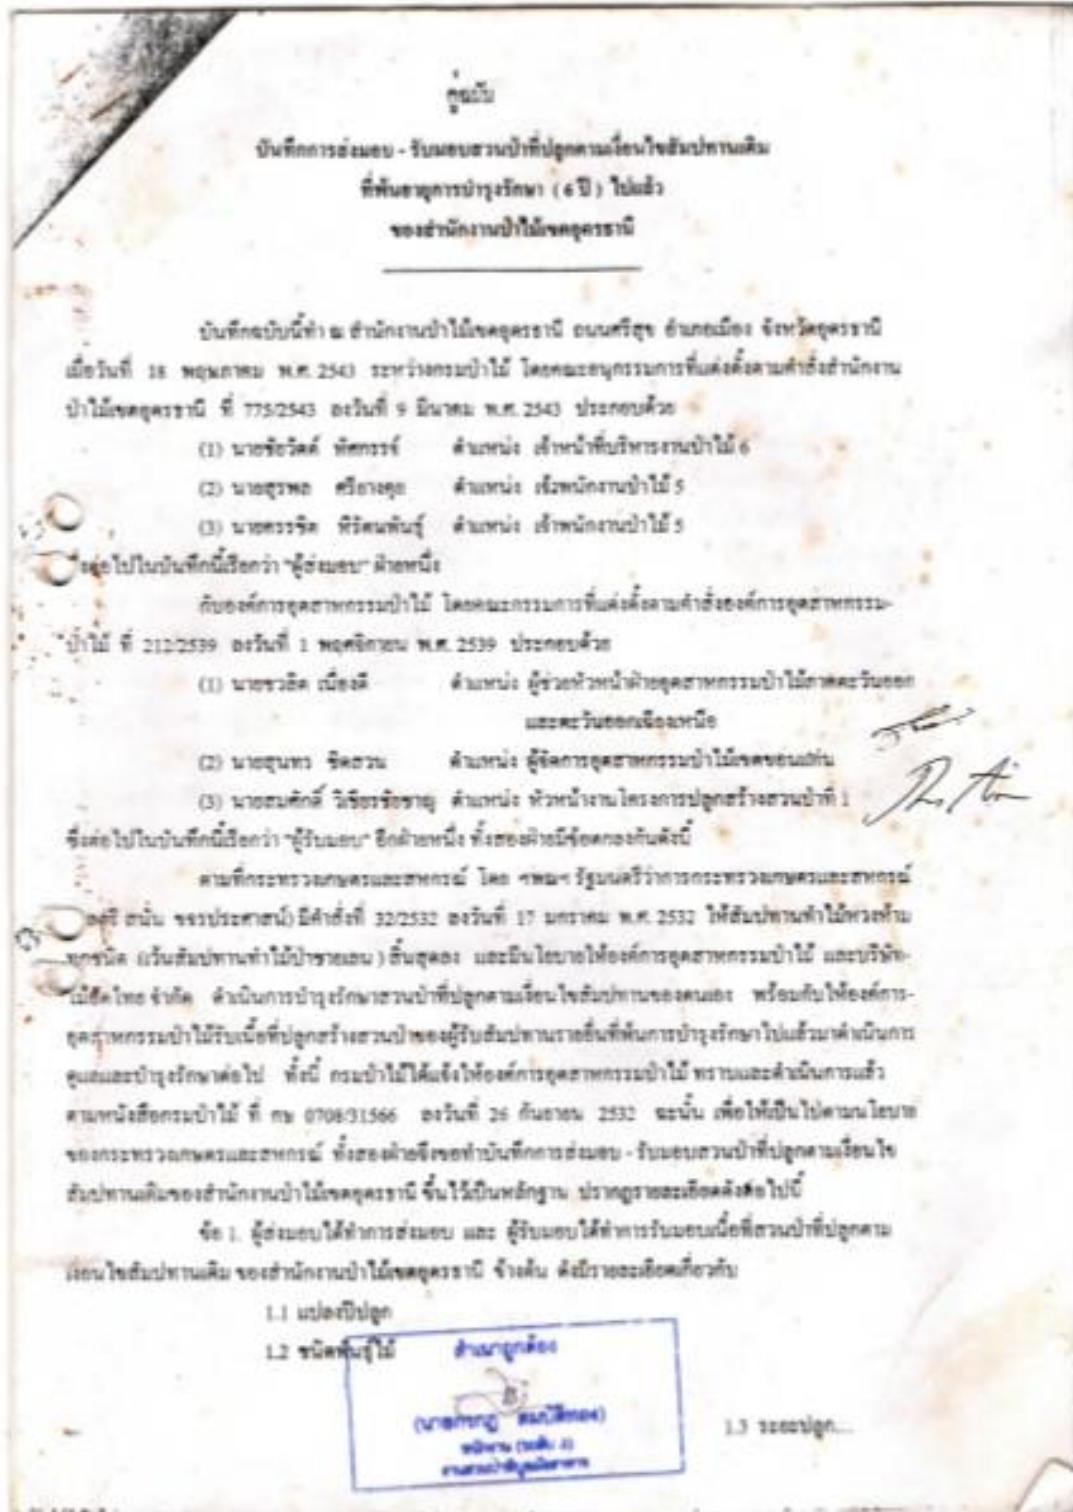 คู่ฉบับ
บันทึกการส่งมอบ - รับมอบสวนป่าที่ปลูกตามเงื่อนไขสัมปทานเดิม
ที่พ้นอายุการบำรุงรักษา ( 6 ปี ) ไปแล้ว
ของสำนักงานป่าไม้เขตอุดรธานี
บันทึกฉบับนี้ทำ ณ สำนักงานป่าไม้เขตอุดรธานี ถนนศรีสุข อำเภอเมือง จังหวัดอุดรธานี
เมื่อวันที่ 18 พฤษภาคม พ.ศ. 2543 ระหว่างกรมป่าไม้ โดยคณะอนุกรรมการที่แต่งตั้งตามคำสั่งสำนักงาน
ป่าไม้เขตอุดรธานี ที่ 775/2543 ลงวันที่ 9 มีนาคม พ.ศ. 2543 ประกอบด้วย
(1) นายชัยวัตต์ ทัศกรรจ์ ตำแหน่ง เจ้าหน้าที่บริหารงานป่าไม้ 6
(2) นายสุรพล ตำแหน่ง เจ้าพนักงานป่าไม้ 5
(3) นายครรชิต ตำแหน่ง เจ้าพนักงานป่าไม้ 5
ซึ่งต่อไปในบันทึกนี้เรียกว่า "ผู้ส่งมอบ" ฝ่ายหนึ่ง
กับองค์การอุตสาหกรรมป่าไม้ โดยคณะกรรมการที่แต่งตั้งตามคำสั่งองค์การอุตสาหกรรม-
ป่าไม้ ที่ 212/2539 ลงวันที่ 1 พฤศจิกายน พ.ศ. 2539 ประกอบด้วย
(1) นายชวลิต เนื่องดี ตำแหน่ง ผู้ช่วยหัวหน้าฝ่ายอุตสาหกรรมป่าไม้ภาคตะวันออก
และตะวันออกเฉียงเหนือ
(2) นายสุนทร ชิดสวน ตำแหน่ง ผู้จัดการอุตสาหกรรมป่าไม้เขตขอนแก่น
(3) นายสมศักดิ์ วิเชียรชัยชาญ ตำแหน่ง หัวหน้างานโครงการปลูกสร้างสวนป่าที่ 1
ซึ่งต่อไปในบันทึกนี้เรียกว่า "ผู้รับมอบ" อีกฝ่ายหนึ่ง ทั้งสองฝ่ายมีข้อตกลงกันดังนี้
ตามที่กระทรวงเกษตรและสหกรณ์ โดย ฯพณฯ รัฐมนตรีว่าการกระทรวงเกษตรและสหกรณ์
ตรี สนั่น ขจรประศาสน์) มีคำสั่งที่ 32/2532 ลงวันที่ 17 มกราคม พ.ศ. 2532 ให้สัมปทานทำไม้หวงห้าม
ทุกชนิด (เว้นสัมปทานทำไม้ป่าชายเลน ) สิ้นสุดลง และมีนโยบายให้องค์การอุตสาหกรรมป่าไม้ และบริษัท-
ไม้อัดไทย จำกัด ดำเนินการบำรุงรักษาสวนป่าที่ปลูกตามเงื่อนไขสัมปทานของตนเอง พร้อมกับให้องค์การ-
อุตสาหกรรมป่าไม้รับเนื้อที่ปลูกสร้างสวนป่าของผู้รับสัมปทานรายอื่นที่พ้นการบำรุงรักษาไปแล้วมาดำเนินการ
ดูแลและบำรุงรักษาต่อไป ทั้งนี้ กรมป่าไม้ได้แจ้งให้องค์การอุตสาหกรรมป่าไม้ ทราบและดำเนินการแล้ว
ตามหนังสือกรมป่าไม้ ที่ กษ 0708/31566 ลงวันที่ 26 กันยายน 2532 ฉะนั้น เพื่อให้เป็นไปตามนโยบาย
ของกระทรวงเกษตรและสหกรณ์ ทั้งสองฝ่ายจึงขอทำบันทึกการส่งมอบ - รับมอบสวนป่าที่ปลูกตามเงื่อนไข
สัมปทานเดิมของสำนักงานป่าไม้เขตอุดรธานี ขึ้นไว้เป็นหลักฐาน ปรากฏรายละเอียดดังต่อไปนี้
ข้อ 1. ผู้ส่งมอบได้ทำการส่งมอบ และ ผู้รับมอบได้ทำการรับมอบเนื้อที่สวนป่าที่ปลูกตาม
เงื่อนไขสัมปทานเดิม ของสำนักงานป่าไม้เขตอุดรธานี ข้างต้น ดังมีรายละเอียดเกี่ยวกับ
1.1 แปลงปีปลูก
1.2 ชนิดพันธุ์ไม้
สำเนาถูกต้อง
(นายกรกฎ สมบัติทอง)
พนักงาน (ระดับ 3)
1.3 ระยะปลูก...